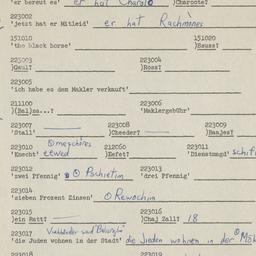 'er bereut es' er hat Charote )Charoote?
223002
'jetzt hat er Mitleid' er hat Rachmones
151010 151020
'the black horse' )Szuss?
223003 223004
)Gaul? )Ross?
223005
'ich habe es dem Makler verkauft'
211100 223006
)(Ba)ss...? 'Maklergebühr'
223007 223008 223009
'Stall' )Cheeder? )Banjes?
223010 meschores 212060 223011
'Knecht' eewed )Hefet? 'Dienstmagd' schif
223012 223013
'zwei Pfennig' Pschietim 'drei Pfennig'
223014
'sieben Prozent Zinsen' Rewochim
223015 223016
)ein Ratt? )Chaj Zall? 18
223017
'die Juden wohnen in der Stadt' die Jieden wohnen in der
223018 223019